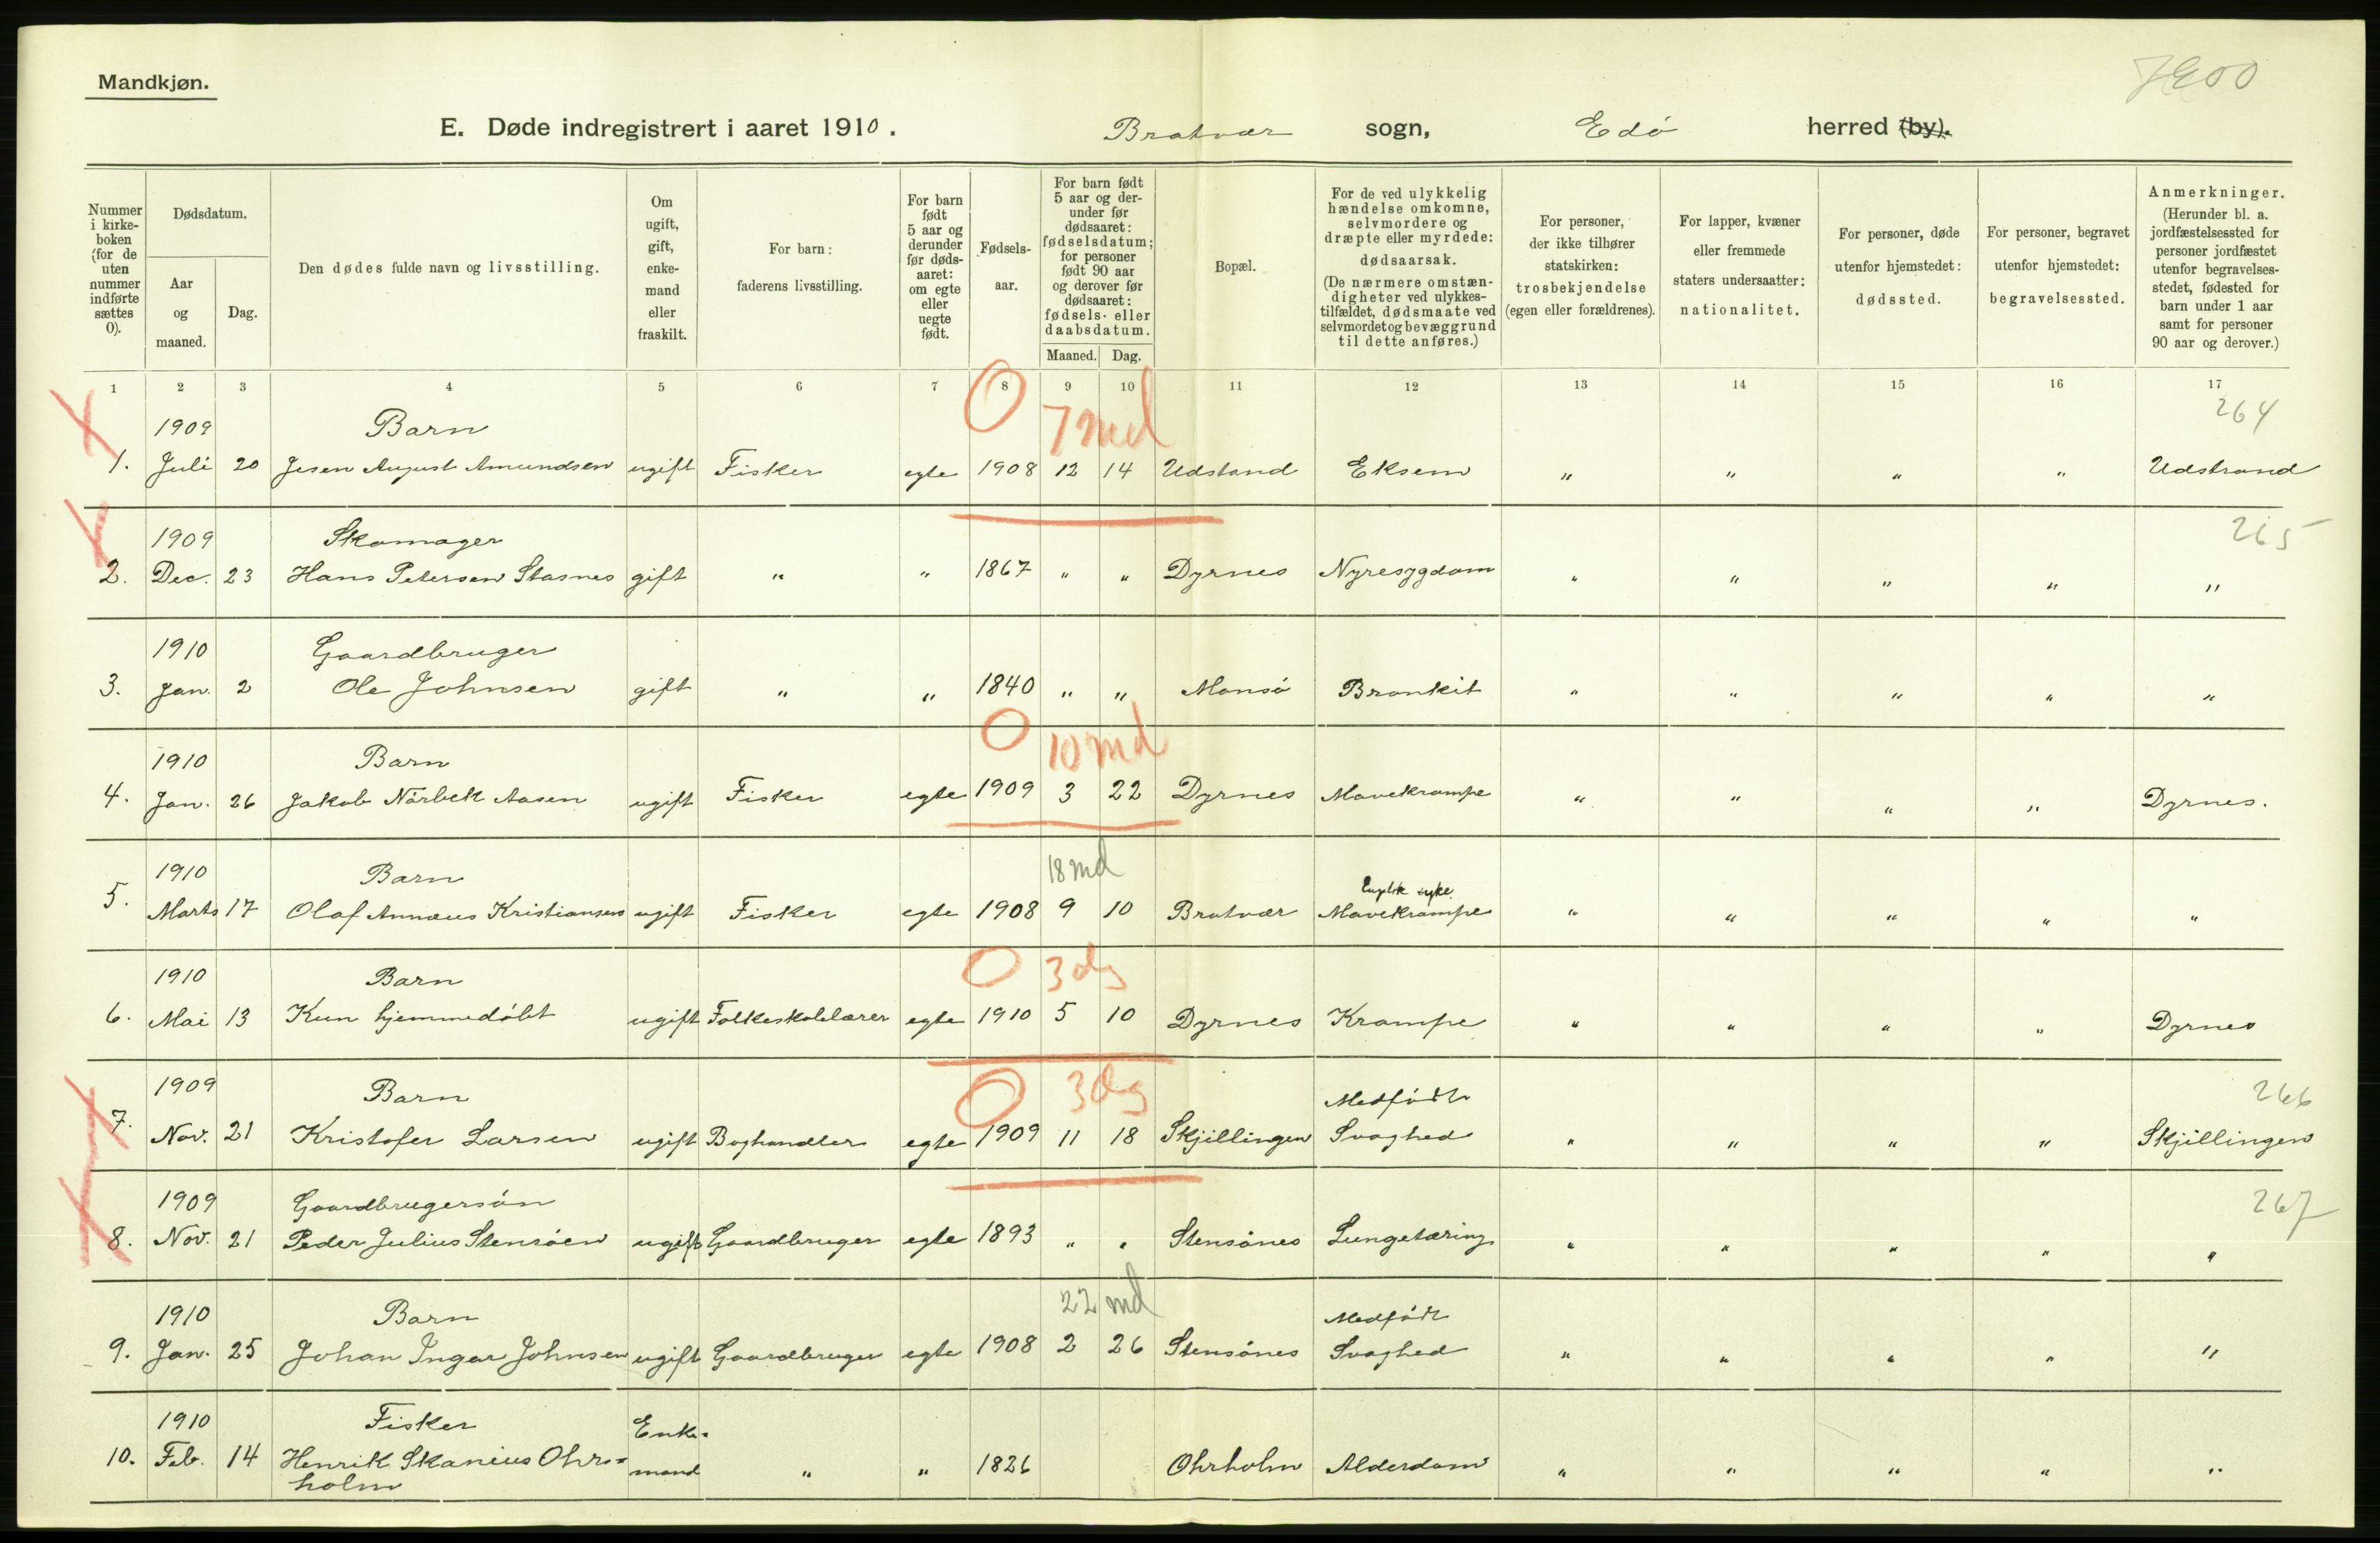 Mandkjøn.
7900
E. Døde indregistrert i aaret 1910. Bratvær sogn, Edö herred (by).
Nummer i kirkeboken (for de uten nummer indførte sættes 0).
Dødsdatum.
Aar og maaned.
Dag.
Den dødes fulde navn og livsstilling.
Om ugift, gift, enkemand eller fraskilt.
For barn: faderens livsstilling.
For barn født 5 aar og derunder før dødsaaret: om egte eller uegte født.
Fødselsaar.
For barn født 5 aar og derunder før dødsaaret: fødselsdatum; for personer født 90 aar og derover før dødsaaret: fødsels- eller daabsdatum.
Maaned. Dag.
Bopæl.
For de ved ulykkelig hændelse omkomne, selvmordere og dræpte eller myrdede: dødsaarsak.
(De nærmere omstændigheter ved ulykkestilfældet, dødsmaate ved selvmord et og bevæggrund til dette anføres.)
For personer, der ikke tilhører statskirken: trosbekjendelse (egen eller forældrenes).
For lapper, kvæner eller fremmede staters undersaatter: nationalitet.
For personer, døde utenfor hjemstedet: dødssted.
For personer, begravet utenfor hjemstedet: begravelsessted.
Anmerkninger.
(Herunder bl. a. jordfæstelsessted for personer jordfæstet utenfor begravelsesstedet, fødested for barn under 1 aar samt for personer 90 aar og derover.)
1 2 3 4 5 6 7 8 9 10 11 12 13 14 15 16 17
1909 Barn 0 7 md 264
1. Juli 20 Jesen August Amundsen ugift Fisker egte 1908 12 14 Udstand Eksem " " " " Udstrand
1909 Skomager 265
2. Dec. 23 Hans Petersen Stasnes gift " " 1867 " " Dyrnes Nyresygdom " " " " "
1910 Gaardbruger
3. Jan. 2 Ole Johnsen gift " " 1840 " " Monsö Bronkit " " " " "
1910 Barn 0 10 md
4. Jan. 26 Jakob Nörbek Aasen ugift Fisker egte 1909 3 22 Dyrnes Mavekrampe " " " " Dyrnes.
1910 Barn 18 md
5. Marts 17 Olaf Annæus Kristiansen ugift Fisker egte 1908 9 10 Bratvær Mavekrampe " " " " "
1910 Barn 0 3 dg
6. Mai 13 Kun hjemmedöbt ugift Folkeskolelærer egte 1910 5 10 Dyrnes Krampe " " " " Dyrnes
1909 Barn 0 3 dg Medfödt 266
7. Nov. 21 Kristofer Larsen ugift Boghandler egte 1909 11 18 Skjillingen Svaghed " " " " Skjillingen
1909 Gaardbrugersön 267
8. Nov. 21 Peder Julius Stensöen ugift Gaardbruger egte 1893 " " Stensönes Lungetæring " " " " "
1910 Barn 22 md Medfödt
9. Jan. 25 Johan Ingar Johnsen ugift Gaardbruger egte 1908 2 26 Stensönes Svaghed " " " " "
1910 Fisker Enke-
10. Feb. 14 Henrik Skanius Ohr= mand " " 1826 Ohrholm Alderdom " " " " "
holm